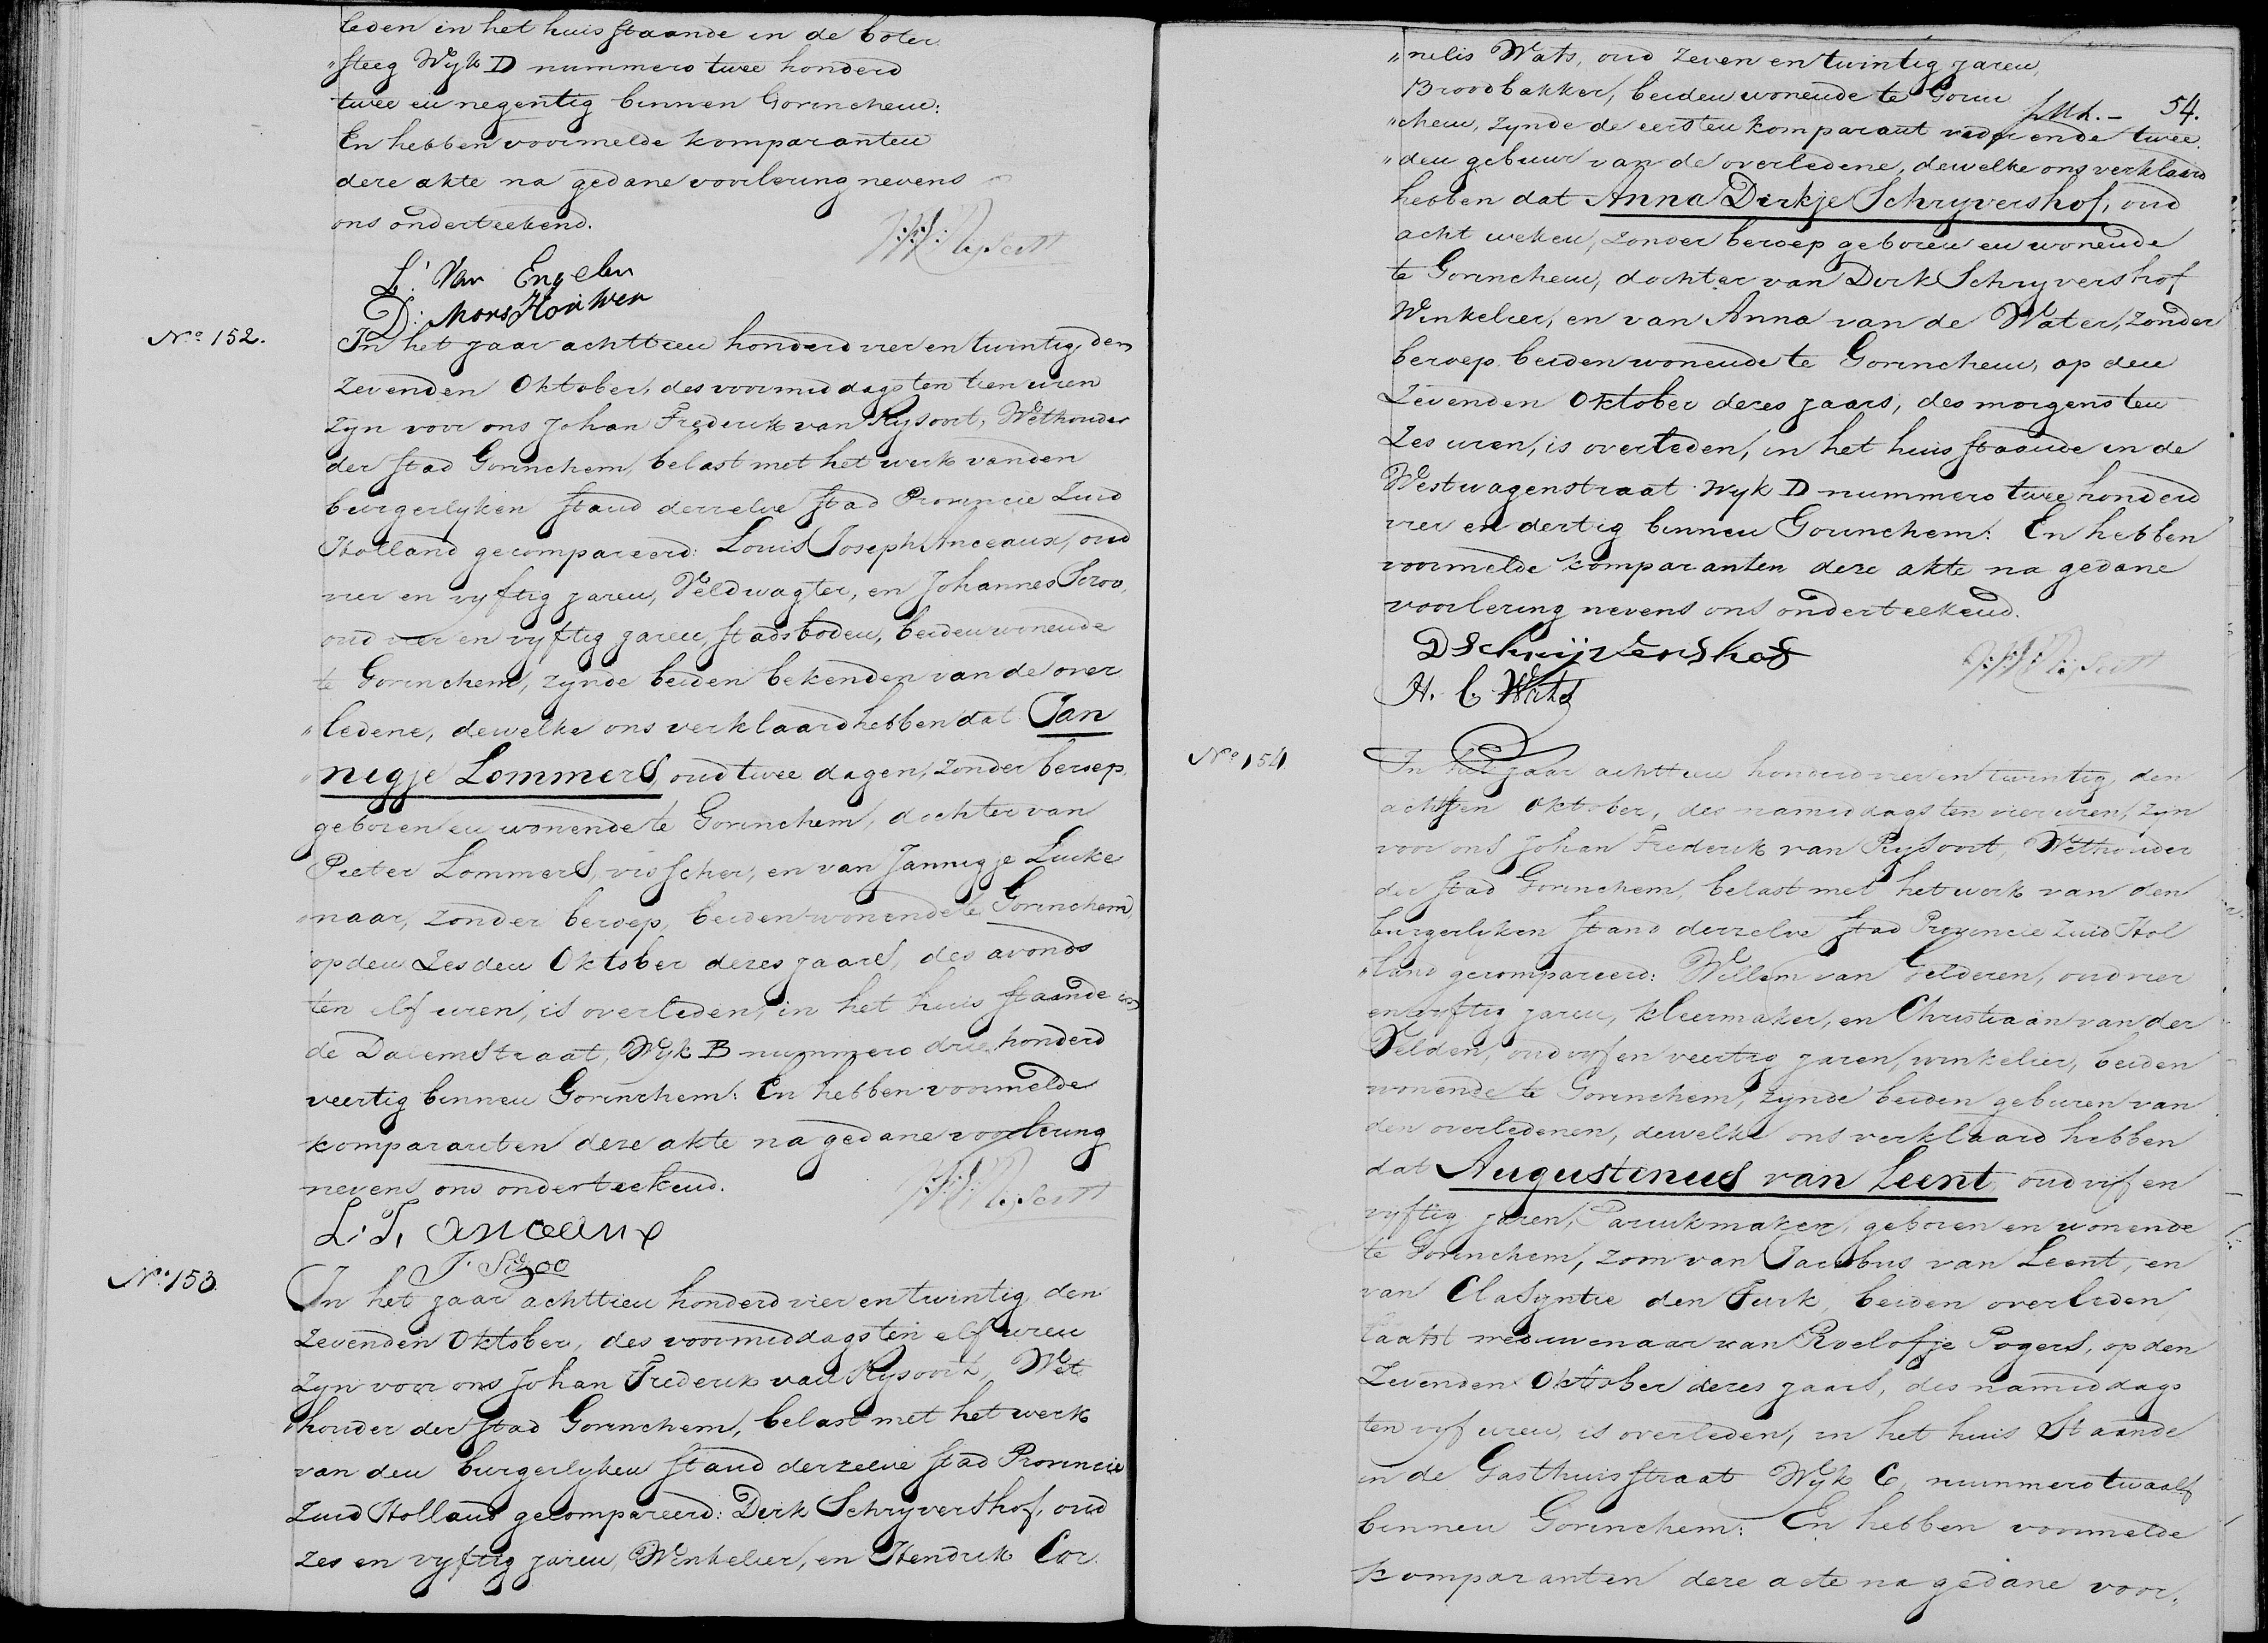 leden in het huis staande in de boter
„steeg Wijk D nummero twee honderd
twee en negentig binnen Gorinchem:
En hebben voormelde komparanten
deze akte na gedane voorlezing nevens
ons onderteekend.
L. Van Engelen
D: Mons
No 152.
In het jaar achttien honderd vier en twintig den
zevenden Oktober, des voormiddags ten tien uren
zyn voor ons Johan Frederik van Rysoort, Wethouder
der stad Gorinchem, belast met het werk van den
burgerlyken stand derzelve stad Provincie Zuid
Holland gecompareerd: Louis Joseph Anceaux, oud
vier en vyftig jaren, Veldwagter, en Johannes Scroo,
oud vier en vyftig jaren, stadsboden, beiden wonende
te Gorinchem, zynde beiden bekenden van de over
„ledene, dewelke ons verklaard hebben dat Jan
„nigje Lommers, oud twee dagen, zonder beroep,
geboren en wonende te Gorinchem, dochter van
Pieter Lommers, visscher, en van Jannigje Luike
„naar, zonder beroep, beiden wonende te Gorinchem,
op den Zesden Oktober dezes jaars, des avonds
ten elf uren, is overleden, in het huis staande in
de Dalemstraat, Wyk B nummero drie honderd
veertig binnen Gorinchem: En hebben voormelde
komparanten deze akte na gedane voorlezing
nevens ons onderteekend.
L. J. anceaux
No 153.
In het jaar achttien honderd vier en twintig den
zevenden Oktober, des voormiddags ten elf uren
zyn voor ons Johan Frederik van Rysoort, Wet
„houder der stad Gorinchem, belast met het werk
van den burgerlyken stand derzelve stad Provincie
Zuid Holland gecompareerd: Dirk Schryvershof, oud
zes en vyftig jaren, Winkelier, en Hendrik Cor
„nelis Wats, oud zeven en twintig jaren,
Broodbakker, beiden wonende te Gorin
54.
„chem, zynde de eersten komparant vader en de twee
„den gebuur van de overledene, dewelke ons verklaard
hebben dat Anna Dirkje Schryvershof, oud
acht weken, zonder beroep geboren en wonende
te Gorinchem, dochter van Dirk Schryvershof
Winkelier, en van Anna van de Water, zonder
beroep beiden wonende te Gorinchem, op den
Zevenden Oktober dezes jaars, des morgens ten
Zes uren, is overleden, in het huis staande in de
Westwagenstraat Wyk D nummero twee honderd
vier en dertig binnen Gorinchem: En hebben
voormelde komparanten deze akte na gedane
voorlezing nevens ons onderteekend.
D Schrijvershof
H. C. Wats
No 154.
In het jaar achttien honderd vier en twintig, den
achtsten Oktober, des namiddags ten vier uren, zyn
voor ons Johan Frederik van Rysoort, Wethouder
der stad Gorinchem, belast met het werk van den
burgerlyken stand derzelve stad Provincie Zuid Hol
„land gecompareerd: Willem van Gelderen, oud vier
en vyftig jaren, kleermaker, en Christiaan van der
Velden, oud vyf en veertig jaren, winkelier, beiden
wonende te Gorinchem, zynde beiden geburen van
den overledenen, dewelke ons verklaard hebben
dat Augustinus van Leent, oud vyf en
vyftig jaren, Paruikmaker, geboren en wonende
te Gorinchem, zoon van Jacobus van Leent, en
van Clasyntie den Turk, beiden overleden,
laatst weduwenaar van Roelofje Pogers, op den
Zevenden Oktober dezes jaars, des namiddags
ten vyf uren, is overleden, in het huis staande
in de Gasthuisstraat Wyk C, nummero twaalf
binnen Gorinchem: En hebben voormelde
komparanten deze acte na gedane voor„